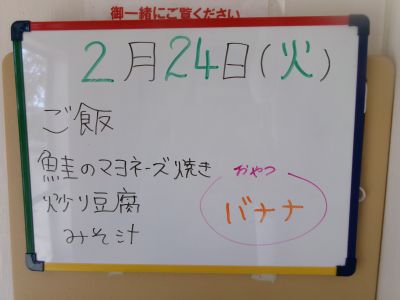 御一緒にご覧ください
2月24日(火)
ご飯
鮭のマヨネーズ焼き
炒り豆腐
みそ汁
おやつ
バナナ